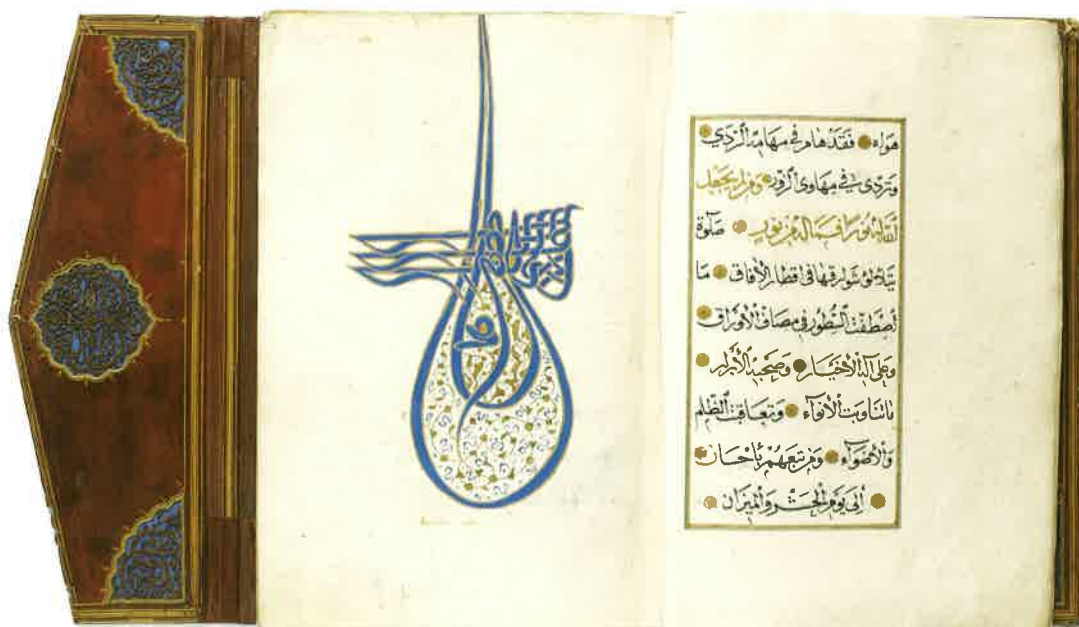 هواه فقد هام في مهامه الردي
وتردي في مهاوي الزور ومن لم يجعل
الله له نورا فما له من نور صلوة
يتلالؤ شوارقها في اقطار الآفاق ما
اصطفت السطور في مصاف الأوراق
وعلى آله الأخيار وصحبه الأبرار
ما تناوبت الأنوآء وتعاقبت الظلم
والأضوآء ومن تبعهم باحسان
إلى يوم الحشر والميزان